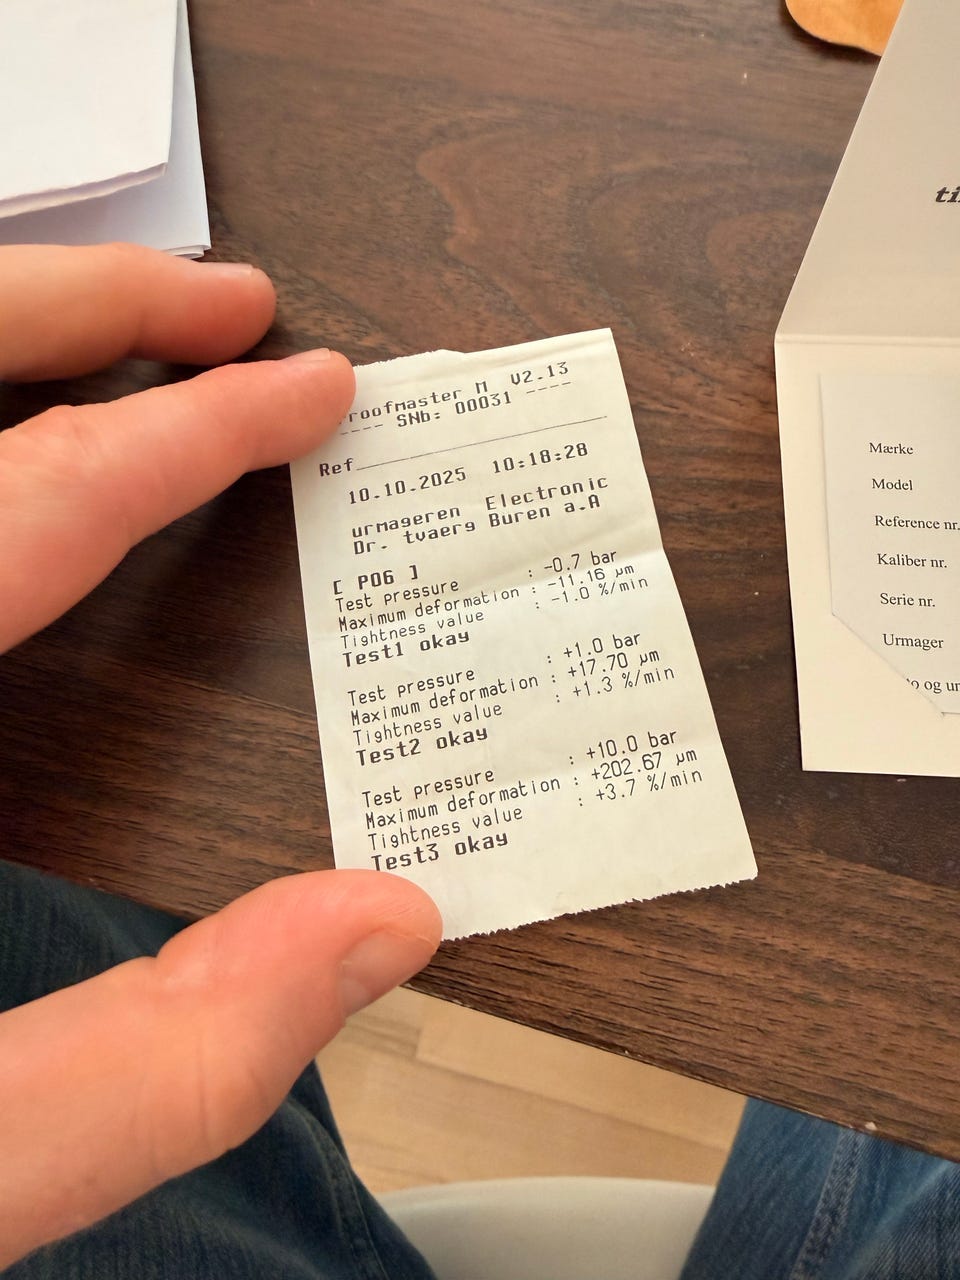 roofmaster M V2.13
---- SNb: 00031 ----
Ref
10.10.2025 10:18:28
urmageren Electronic
Dr. tvaerg Buren a.A
[ P06 ]
Test pressure : -0.7 bar
Maximum deformation : -11.16 µm
Tightness value : -1.0 %/min
Test1 okay
Test pressure : +1.0 bar
Maximum deformation : +17.70 µm
Tightness value : +1.3 %/min
Test2 okay
Test pressure : +10.0 bar
Maximum deformation : +202.67 µm
Tightness value : +3.7 %/min
Test3 okay
Mærke
Model
Reference nr.
Kaliber nr.
Serie nr.
Urmager
og